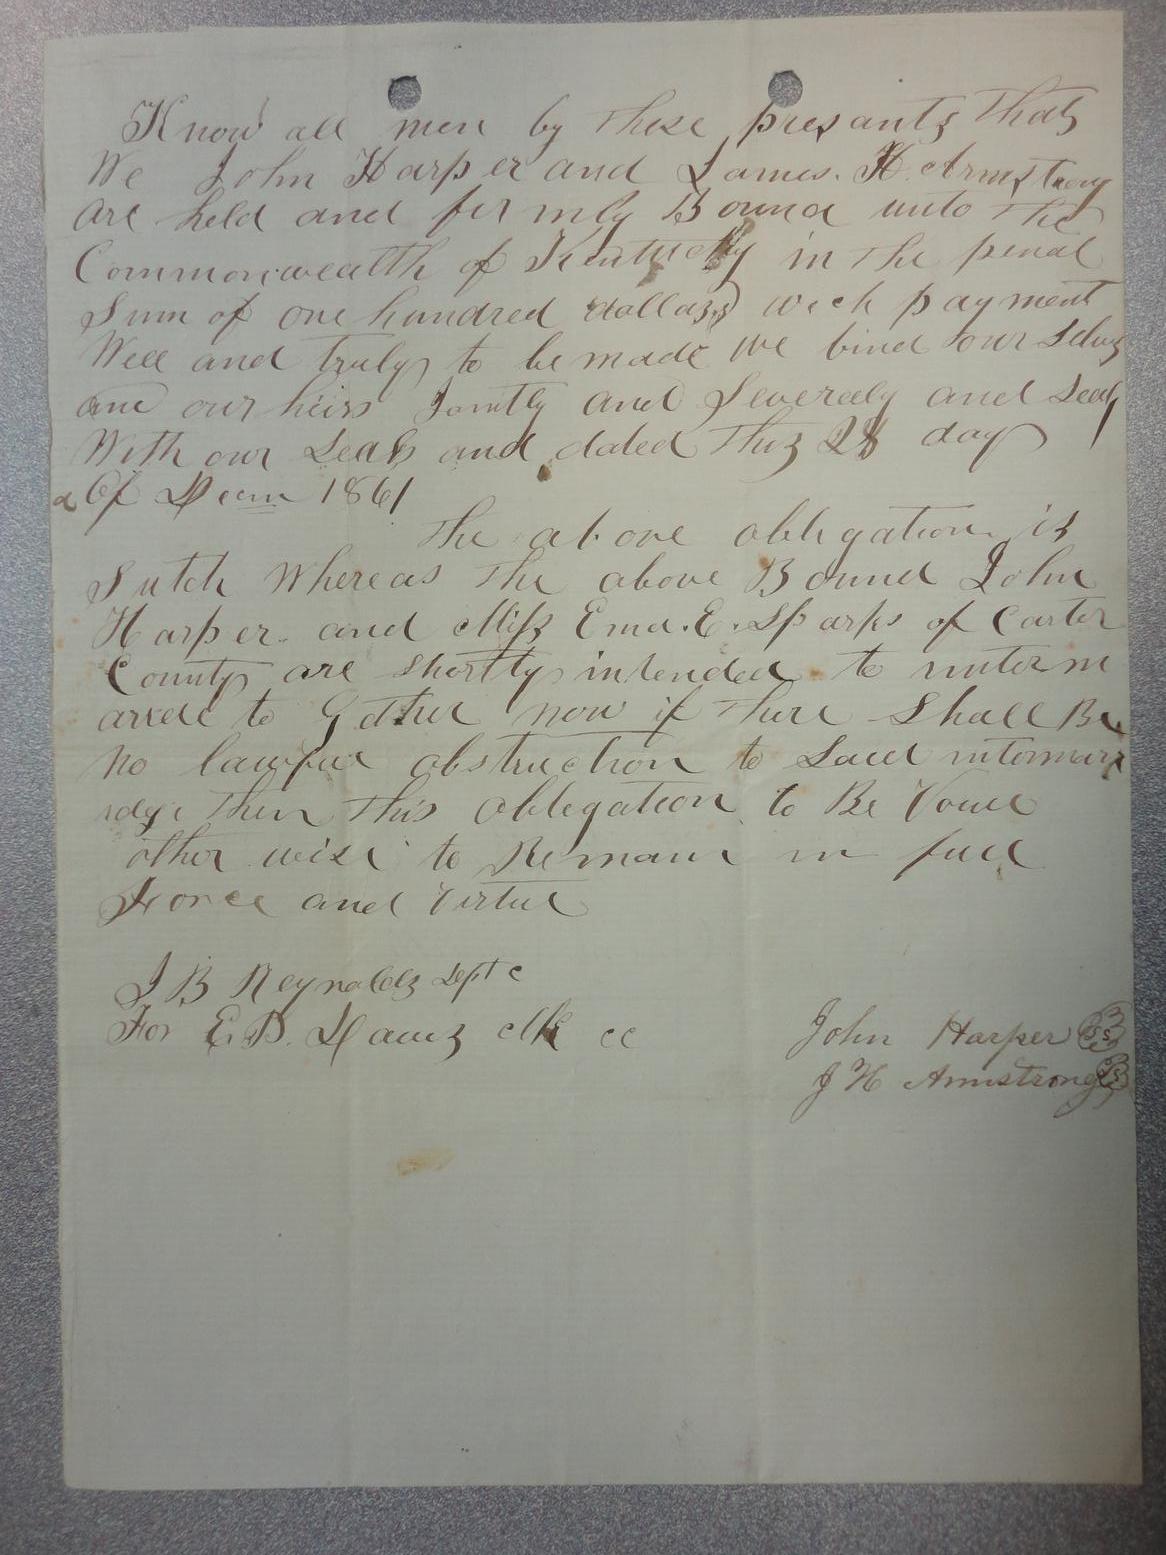 Know all men by these presants that
We John Harper and James. H. Armstrong
are held and firmly Bound unto the
Commonwealth of Kentucky in the penal
Sum of one hundred dollars wich payment
Well and truly to be made we bind our Selvs
and our heirs Jointly and Severeely and Seald
With our Seals and dated this 28 day
Of Decm 1861
The above obligation is
Sutch Whereas the above Bound John
Harper and Miss Ema. E. Sparks of Carter
County are shortly intended to interm
arede to Gather now if there Shall Be
no lawful obstruction to Said intermarr
idge then this obligation to Be Void
other wise to Remain in full
Force and virtue
J B Reynolds Dept c
For E. D. Davis clk cc
John Harper SS
J H Armstrong SS